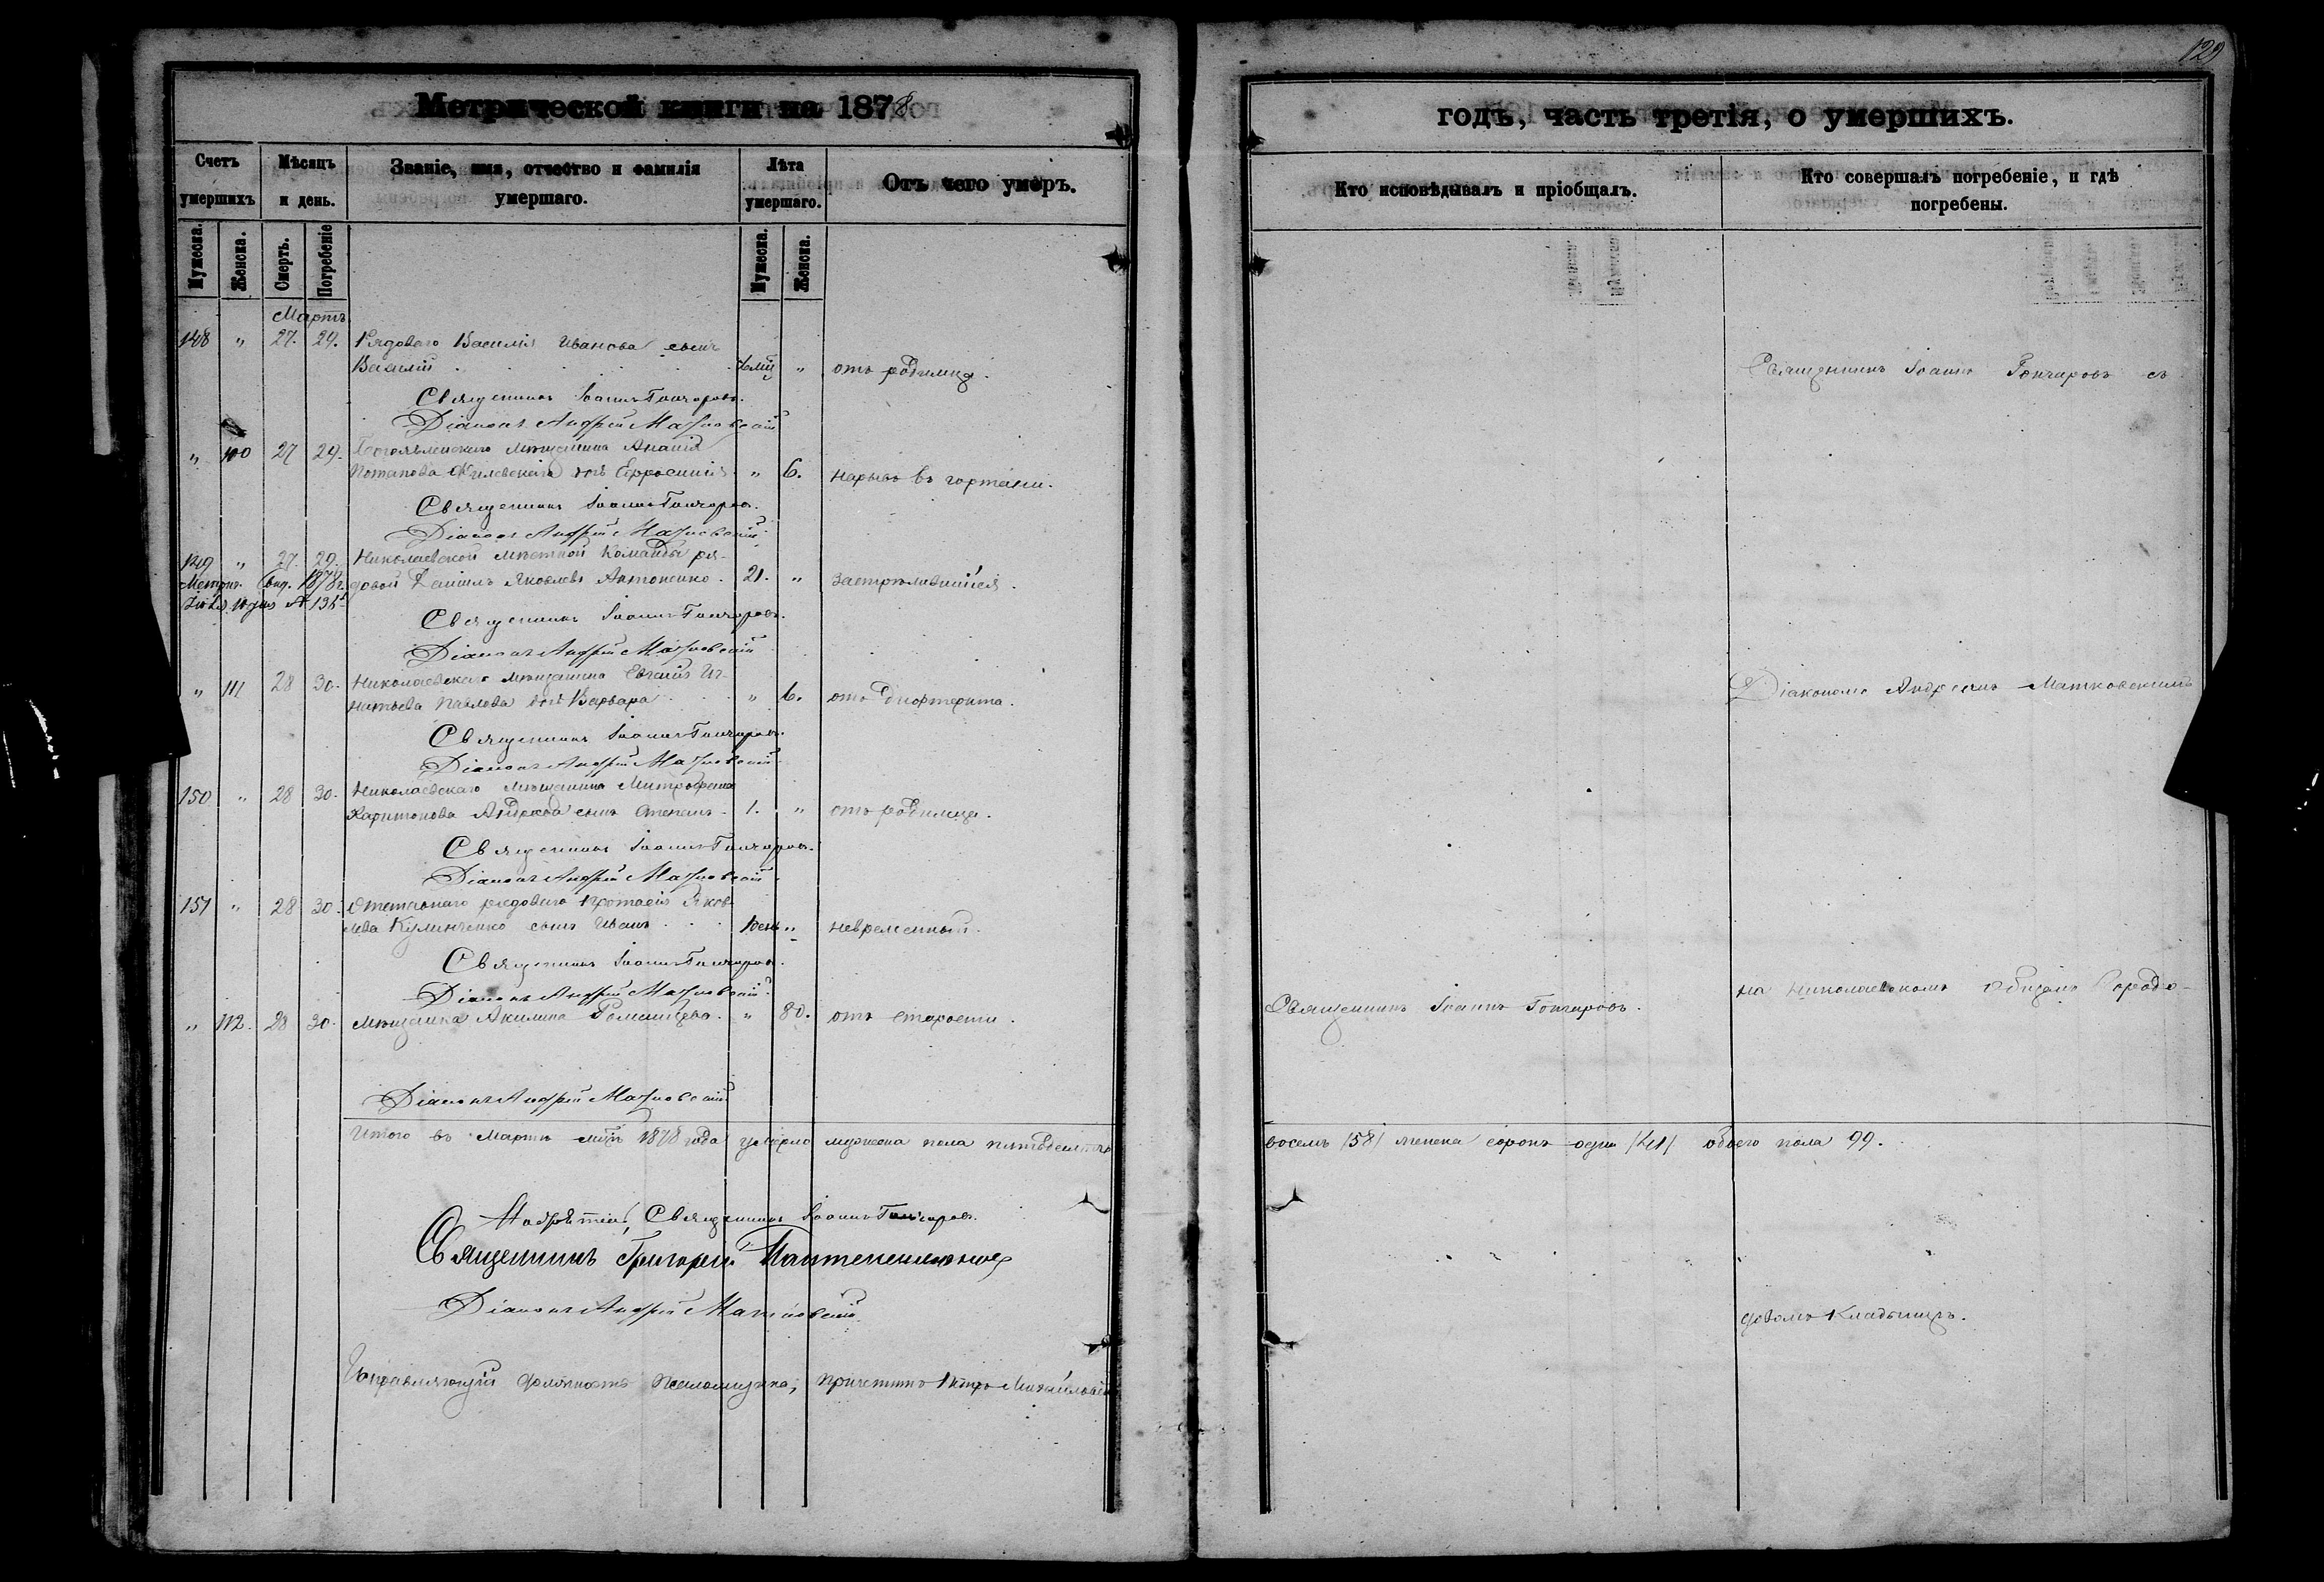 129
Метрической книги на 1878
годъ, часть третія, о умершихъ.
Счетъ умершихъ
Мѣсяцъ и день.
Званіе, имя, отчество и фамилія умершаго.
Лѣта умершаго.
Отъ чего умеръ.
Кто исповѣдывалъ и пріобщалъ.
Кто совершалъ погребеніе, и гдѣ погребены.
Мужеска. Женска. Смерть. Погребеніе Мужеска. Женска.
Мартъ
148 " 27. 29. Рядоваго Василія Иванова сынъ
Василій " отъ родимца.
Священникъ Іоаннъ Гончаровъ съ
Священникъ Іоаннъ Гончаровъ.
Діаконъ Андрей Матковскій
" 110 27 29. мѣщанина Ананія
Потапова дочь Евфросинія " 6. нарывъ въ гортани.
Священникъ Іоаннъ Гончаровъ.
Діаконъ Андрей Матковскій
149 " 27. 29. Николаевской мѣстной команды ря-
довой Даніилъ Яковлевъ Антоненко. 21. " застрѣлившійся.
Священникъ Іоаннъ Гончаровъ.
Діаконъ Андрей Матковскій
" 111 28 30. Николаевскаго мѣщанина Евгенія Иг-
натьева Павлова дочь Варвара " 6. отъ дифтерита.
Діакономъ Андреемъ Матковскимъ
Священникъ Іоаннъ Гончаровъ.
Діаконъ Андрей Матковскій
150 " 28 30. Николаевскаго мѣщанина Митрофана
Харитонова сынъ Степанъ. 1. " отъ родимца.
Священникъ Іоаннъ Гончаровъ.
Діаконъ Андрей Матковскій
151 " 28 30. Отставнаго рядоваго Протасія Яков-
лева Кулинченко сынъ Иванъ 1 день " невременный.
Священникъ Іоаннъ Гончаровъ.
Діаконъ Андрей Матковскій
на Николаевскомъ общемъ городо-
" 112. 28 30. Мѣщанка Акилина " 80. отъ старости.
Священникъ Іоаннъ Гончаровъ.
Діаконъ Андрей Матковскій
Итого въ Мартѣ мцѣ 1878 года умерло мужеска пола пятьдесятъ
восемь /58/ женска сорокъ одна /41/ обоего пола 99.
Священникъ Іоаннъ Гончаровъ.
Священникъ Григорій
Діаконъ Андрей Матковскій
Кладбищѣ.
Исправляющій должность Псаломщика, причетникъ Петръ